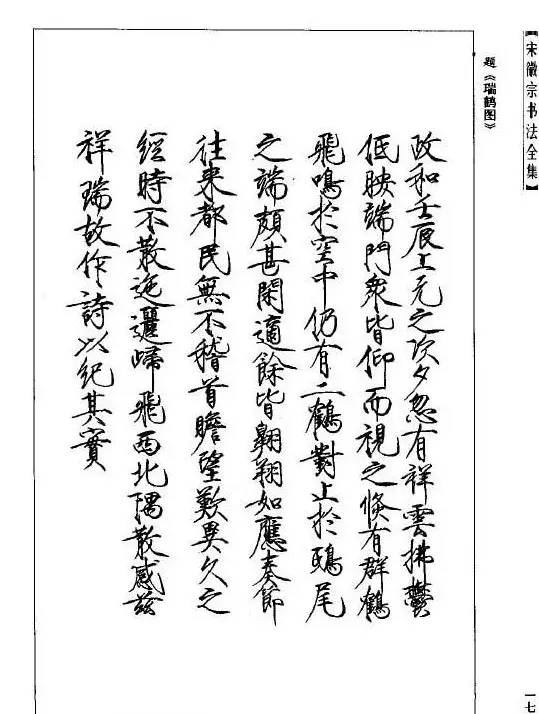 【宋徽宗书法全集】
题《瑞鹤图》
政和壬辰上元之次夕忽有祥雲拂鬱
低映端門衆皆仰而視之倏有群鶴
飛鳴於空中仍有二鶴對止於鴟尾
之端頗甚閑適餘皆翱翔如應奏節
往来都民無不稽首瞻望歎異久之
經時不散迤邐歸飛西北隅散感兹
祥瑞故作詩以紀其實
一七